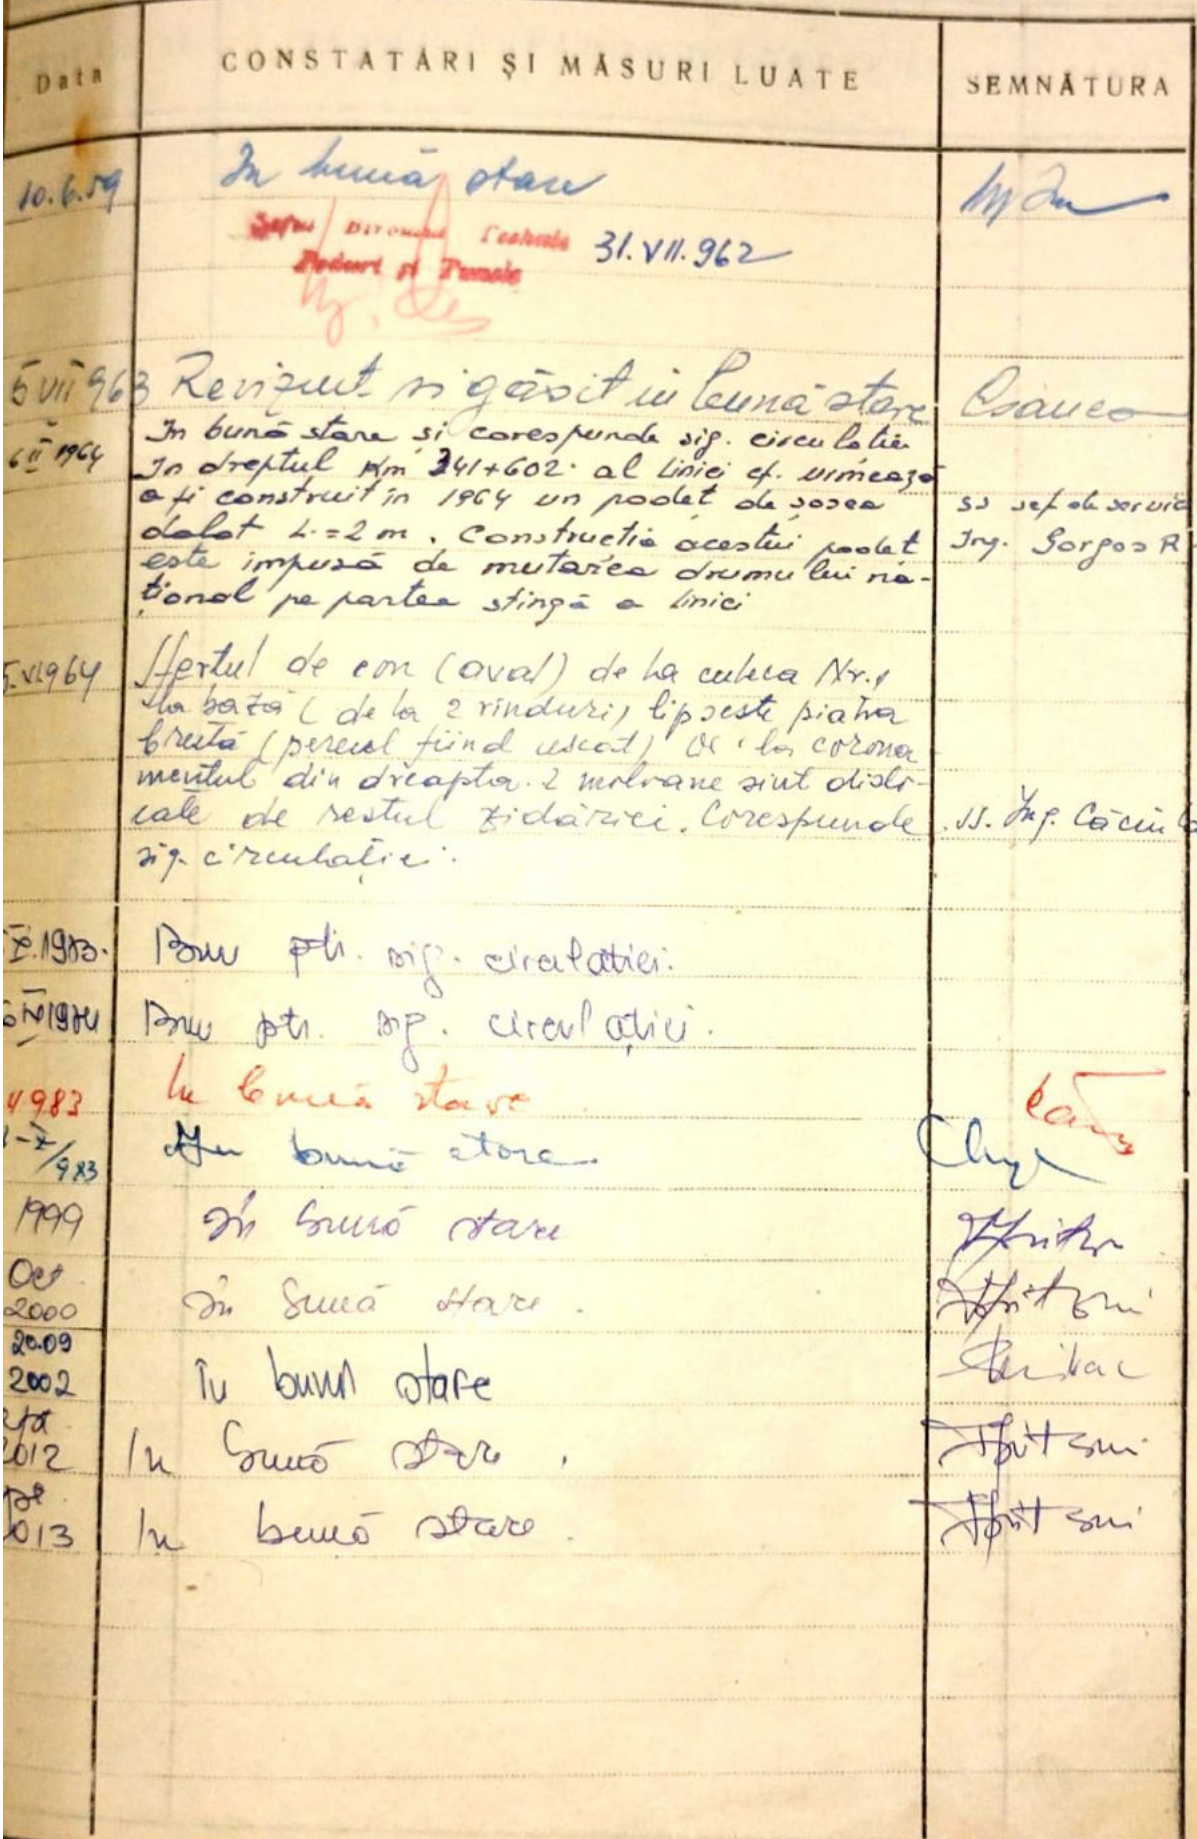 Data CONSTATĂRI ȘI MĂSURI LUATE SEMNĂTURA
10.6.59 In bună stare
Șeful Biroului Technic 31.VII.962
Poduri și Tunele
5 VII 963 Revizuit si găsit in bună stare
6 II 1964 In bună stare si corespunde sig. circulatiei
In dreptul Km 341+602 al Liniei cf. urmează
a fi construit in 1964 un podet de sosea
dalat L=2m. Constructia acestui podet ss sef de servic
este impusă de mutarea drumului na- Ing. Gorgos R
țional pe partea stingă a liniei
5.VI.1964 Sfertul de con (aval) de la culeea Nr. 1
la bază (de la 2 rinduri) lipseste piatra
brută (pereul fiind uscat) De la corona
mentul din dreapta 2 moloane sint dislo-
cate de restul zidăriei. Corespunde ss. Ing.
sig. circulației.
X.1973. Bun ptr. sig. circulatiei.
IV 1974 Bun ptr. sig. circulației.
1983 In bună stare
X/983 In bună stare
1999 In bună stare
Oct 2000 In bună stare.
20.09
2002 În bună stare
2012 In bună stare.
2013 In bună stare.